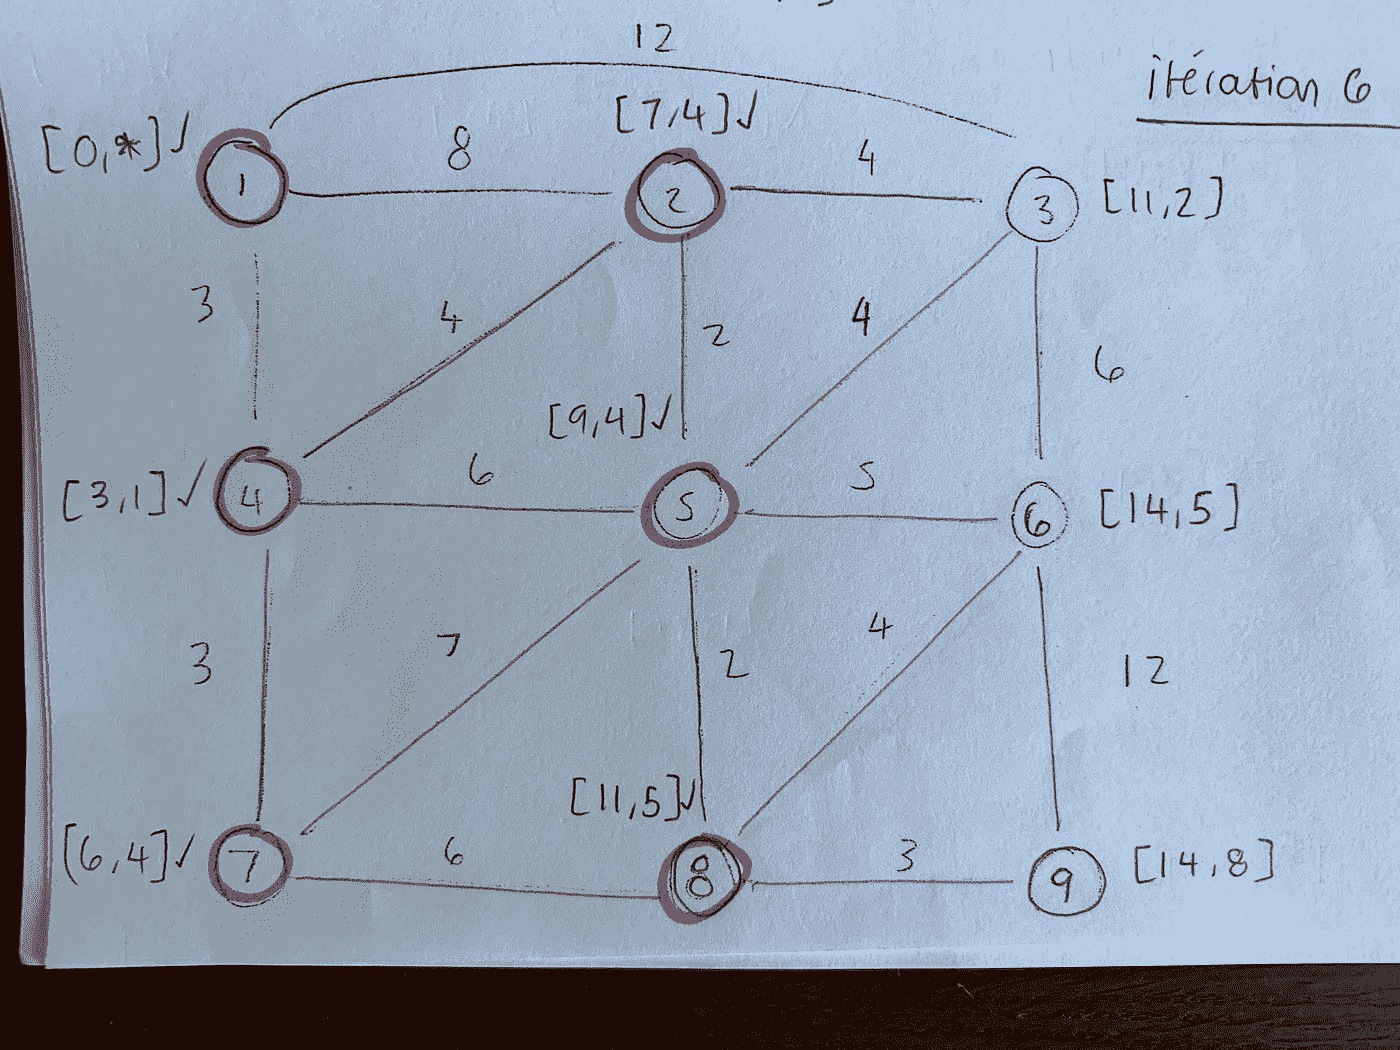 12
itération 6
[0,*]✓
1
8
[7,4]✓
2
4
3
[11,2]
3
4
2
4
6
[9,4]✓
[3,1]✓
4
6
5
5
6
[14,5]
3
7
2
4
12
[6,4]✓
7
6
[11,5]✓
8
3
9
[14,8]